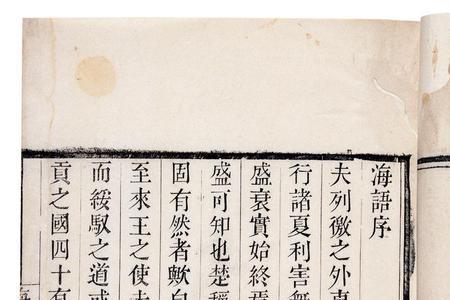 海語序
夫列徼之外東
行諸夏利害無
盛衰實始終焉
盛可知也楚穪
固有然者歟自
至來王之使夫
而綏馭之道或
貢之國四十有
海